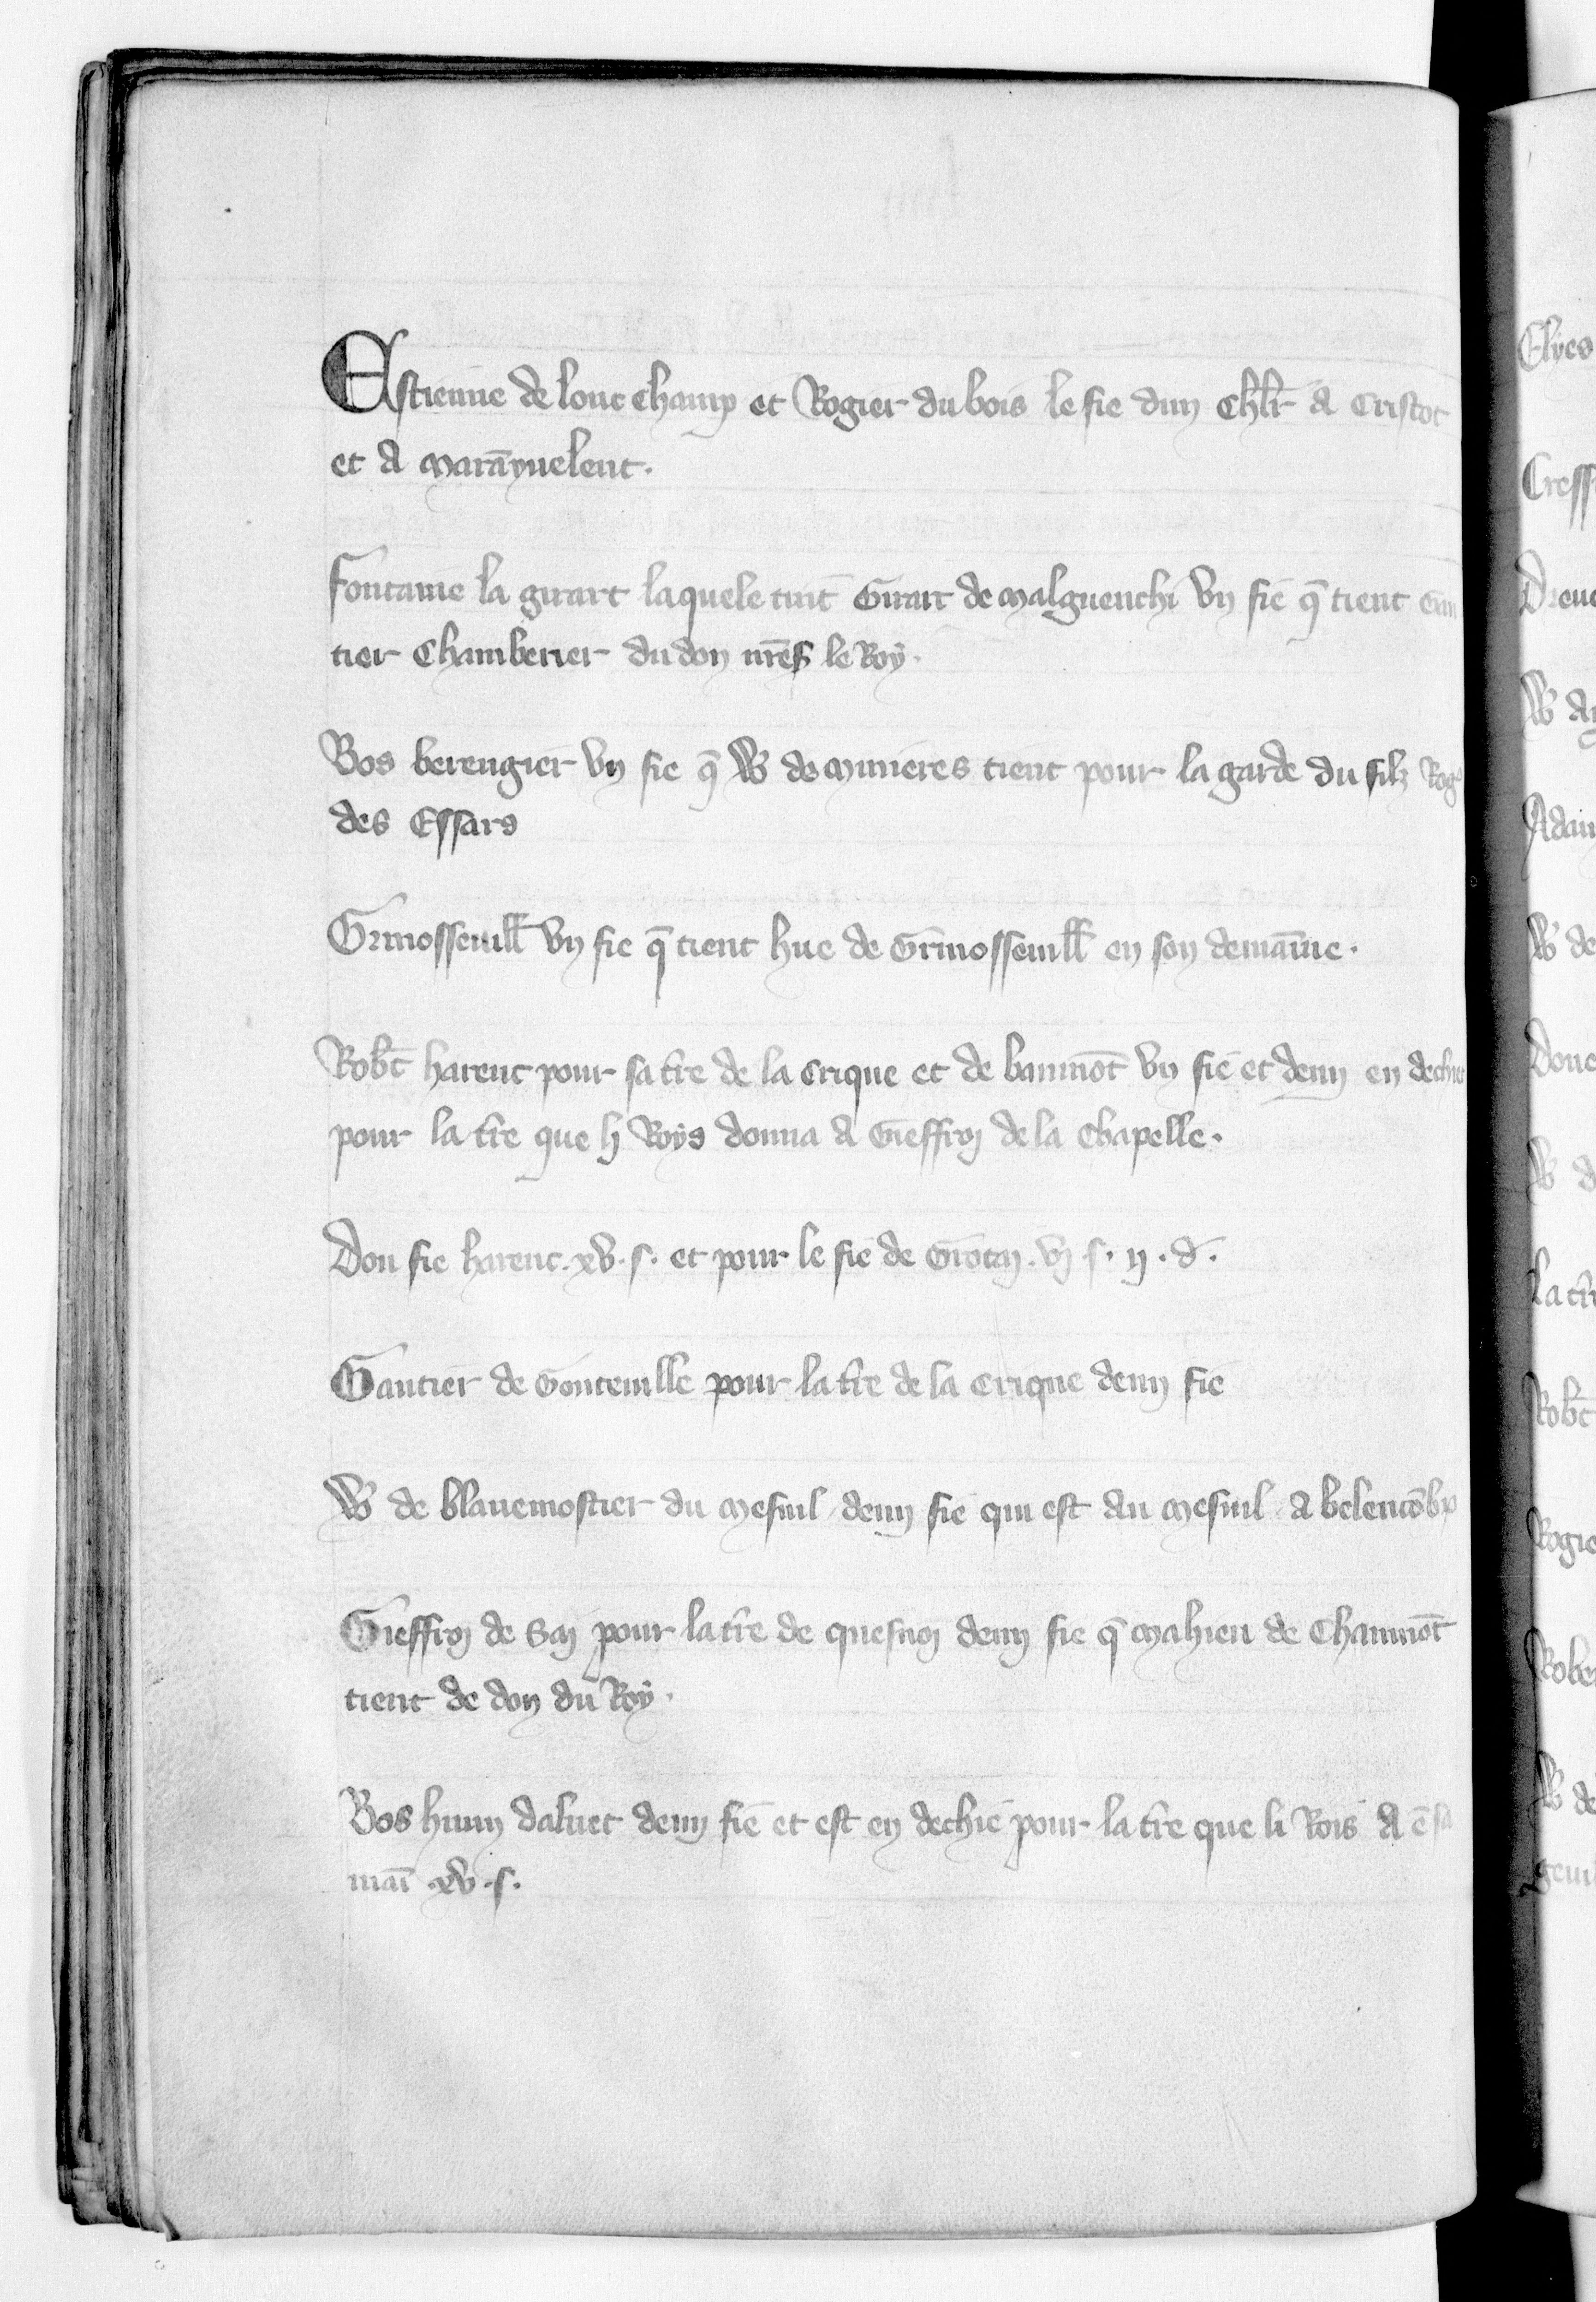 Estienne de lonc champ et Rogier du bois le fie dun chlr̄ A Cristot
et A marāyuelent.
fontaine la girart laquele tint Girart de malguenchi vn fie q̄ tient Gau
tier Chamberier du don nr̄es le Roy.
Bos berengier vn fie q̄ W de minieres tient pour la garde du filz Rog
des Essars
Grinosseuill̄ vn fie q̄ tient hue de Grinosseuill̄ en son demaine.
Rob̄t harenc pour sa tr̄e de la Crique et de baumōt vn fie et demy en dechie
pour la tr̄e que li Roys donna A Gieffroy de la Chapelle.
Dou fie harenc. xv. s. et pour le fie de Grotay. vj s. ij. d.
Gautier de Gonteuille pour la tr̄e de la Crique demy fie
W de blauemostier du mesnil demy fie qui est au mesnil A belencōbr
Gieffroy de Say pour la tr̄e de quesnoy demy fie q̄ mahieu de Chaumōt
tient de don du Roy.
Bos hiuin daluet demy fie et est en dechie pour la tr̄e que li Rois A ē sa
maī xv. s.
Elyes
Cress
W
Adam
W de
Doue
W d
la tr̄e
Rob̄t
Rogie
Rober
W de